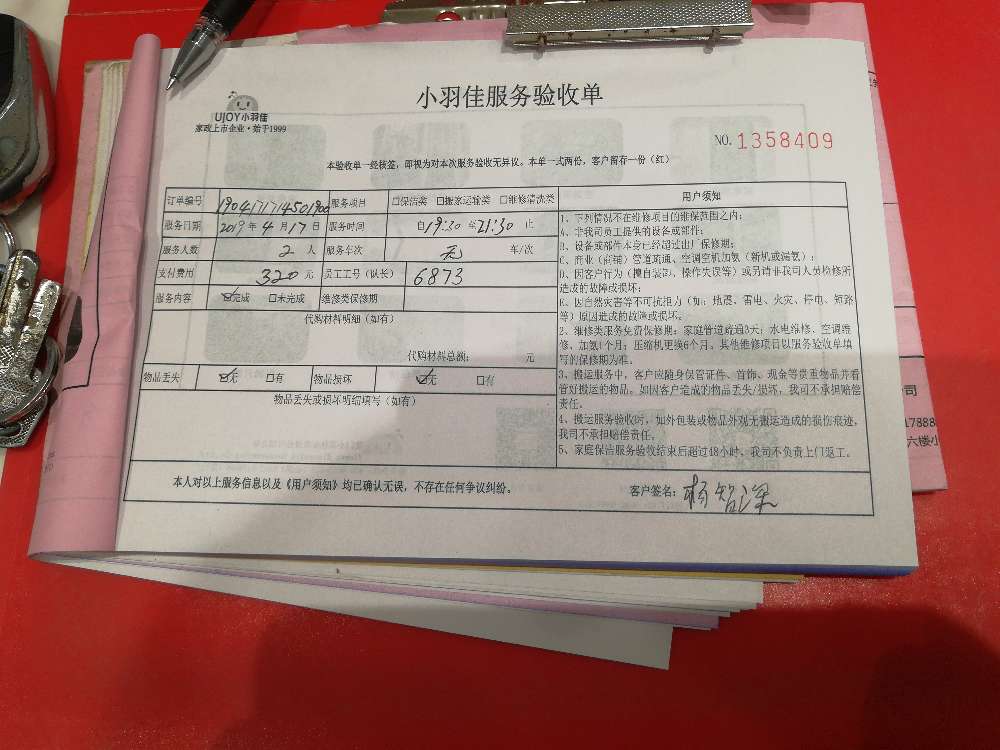 小羽佳服务验收单
UJOY小羽佳
家政上市企业·始于1999
NO. 1358409
本验收单一经核签，即视为对本次服务验收无异议。本单一式两份，客户留存一份（红）
订单编号 服务项目 □保洁类 □搬家运输类 □维修清洗类
服务日期 2019年4月17日 服务时间 自19:30至21:30止
服务人数 2人 服务车次 无 车/次
支付费用 320元 员工工号（队长） 6873
服务内容 ☑完成 □未完成 维修类保修期
代购材料明细（如有）
代购材料总额： 元
物品丢失 ☑无 □有 物品损坏 ☑无 □有
物品丢失或损坏明细填写（如有）
用户须知
1、下列情况不在维修项目的维保范围之内：
A、非我司员工提供的设备或部件；
B、设备或部件本身已经超过出厂保修期；
C、商业（商铺）管道疏通、空调空机加氨（新机或漏氨）；
D、因客户行为（擅自装卸、操作失误等）或另请非我司人员检修所
造成的故障或损坏；
E、因自然灾害等不可抗拒力（如：地震、雷电、火灾、停电、短路
等）原因造成的故障或损坏。
2、维修类服务免费保修期：家庭管道疏通3天；水电维修、空调维
修、加氨1个月；压缩机更换6个月。其他维修项目以服务验收单填
写的保修期为准。
3、搬运服务中，客户应随身保管证件、首饰、现金等贵重物品并看
管好搬运的物品。如因客户造成的物品丢失/损坏，我司不承担赔偿
责任。
4、搬运服务验收时，如外包装或物品外观无搬运造成的损伤痕迹，
我司不承担赔偿责任。
5、家庭保洁服务验收结束后超过48小时，我司不负责上门返工。
本人对以上服务信息以及《用户须知》均已确认无误，不存在任何争议纠纷。
客户签名：杨智深
公司
17888
六楼小